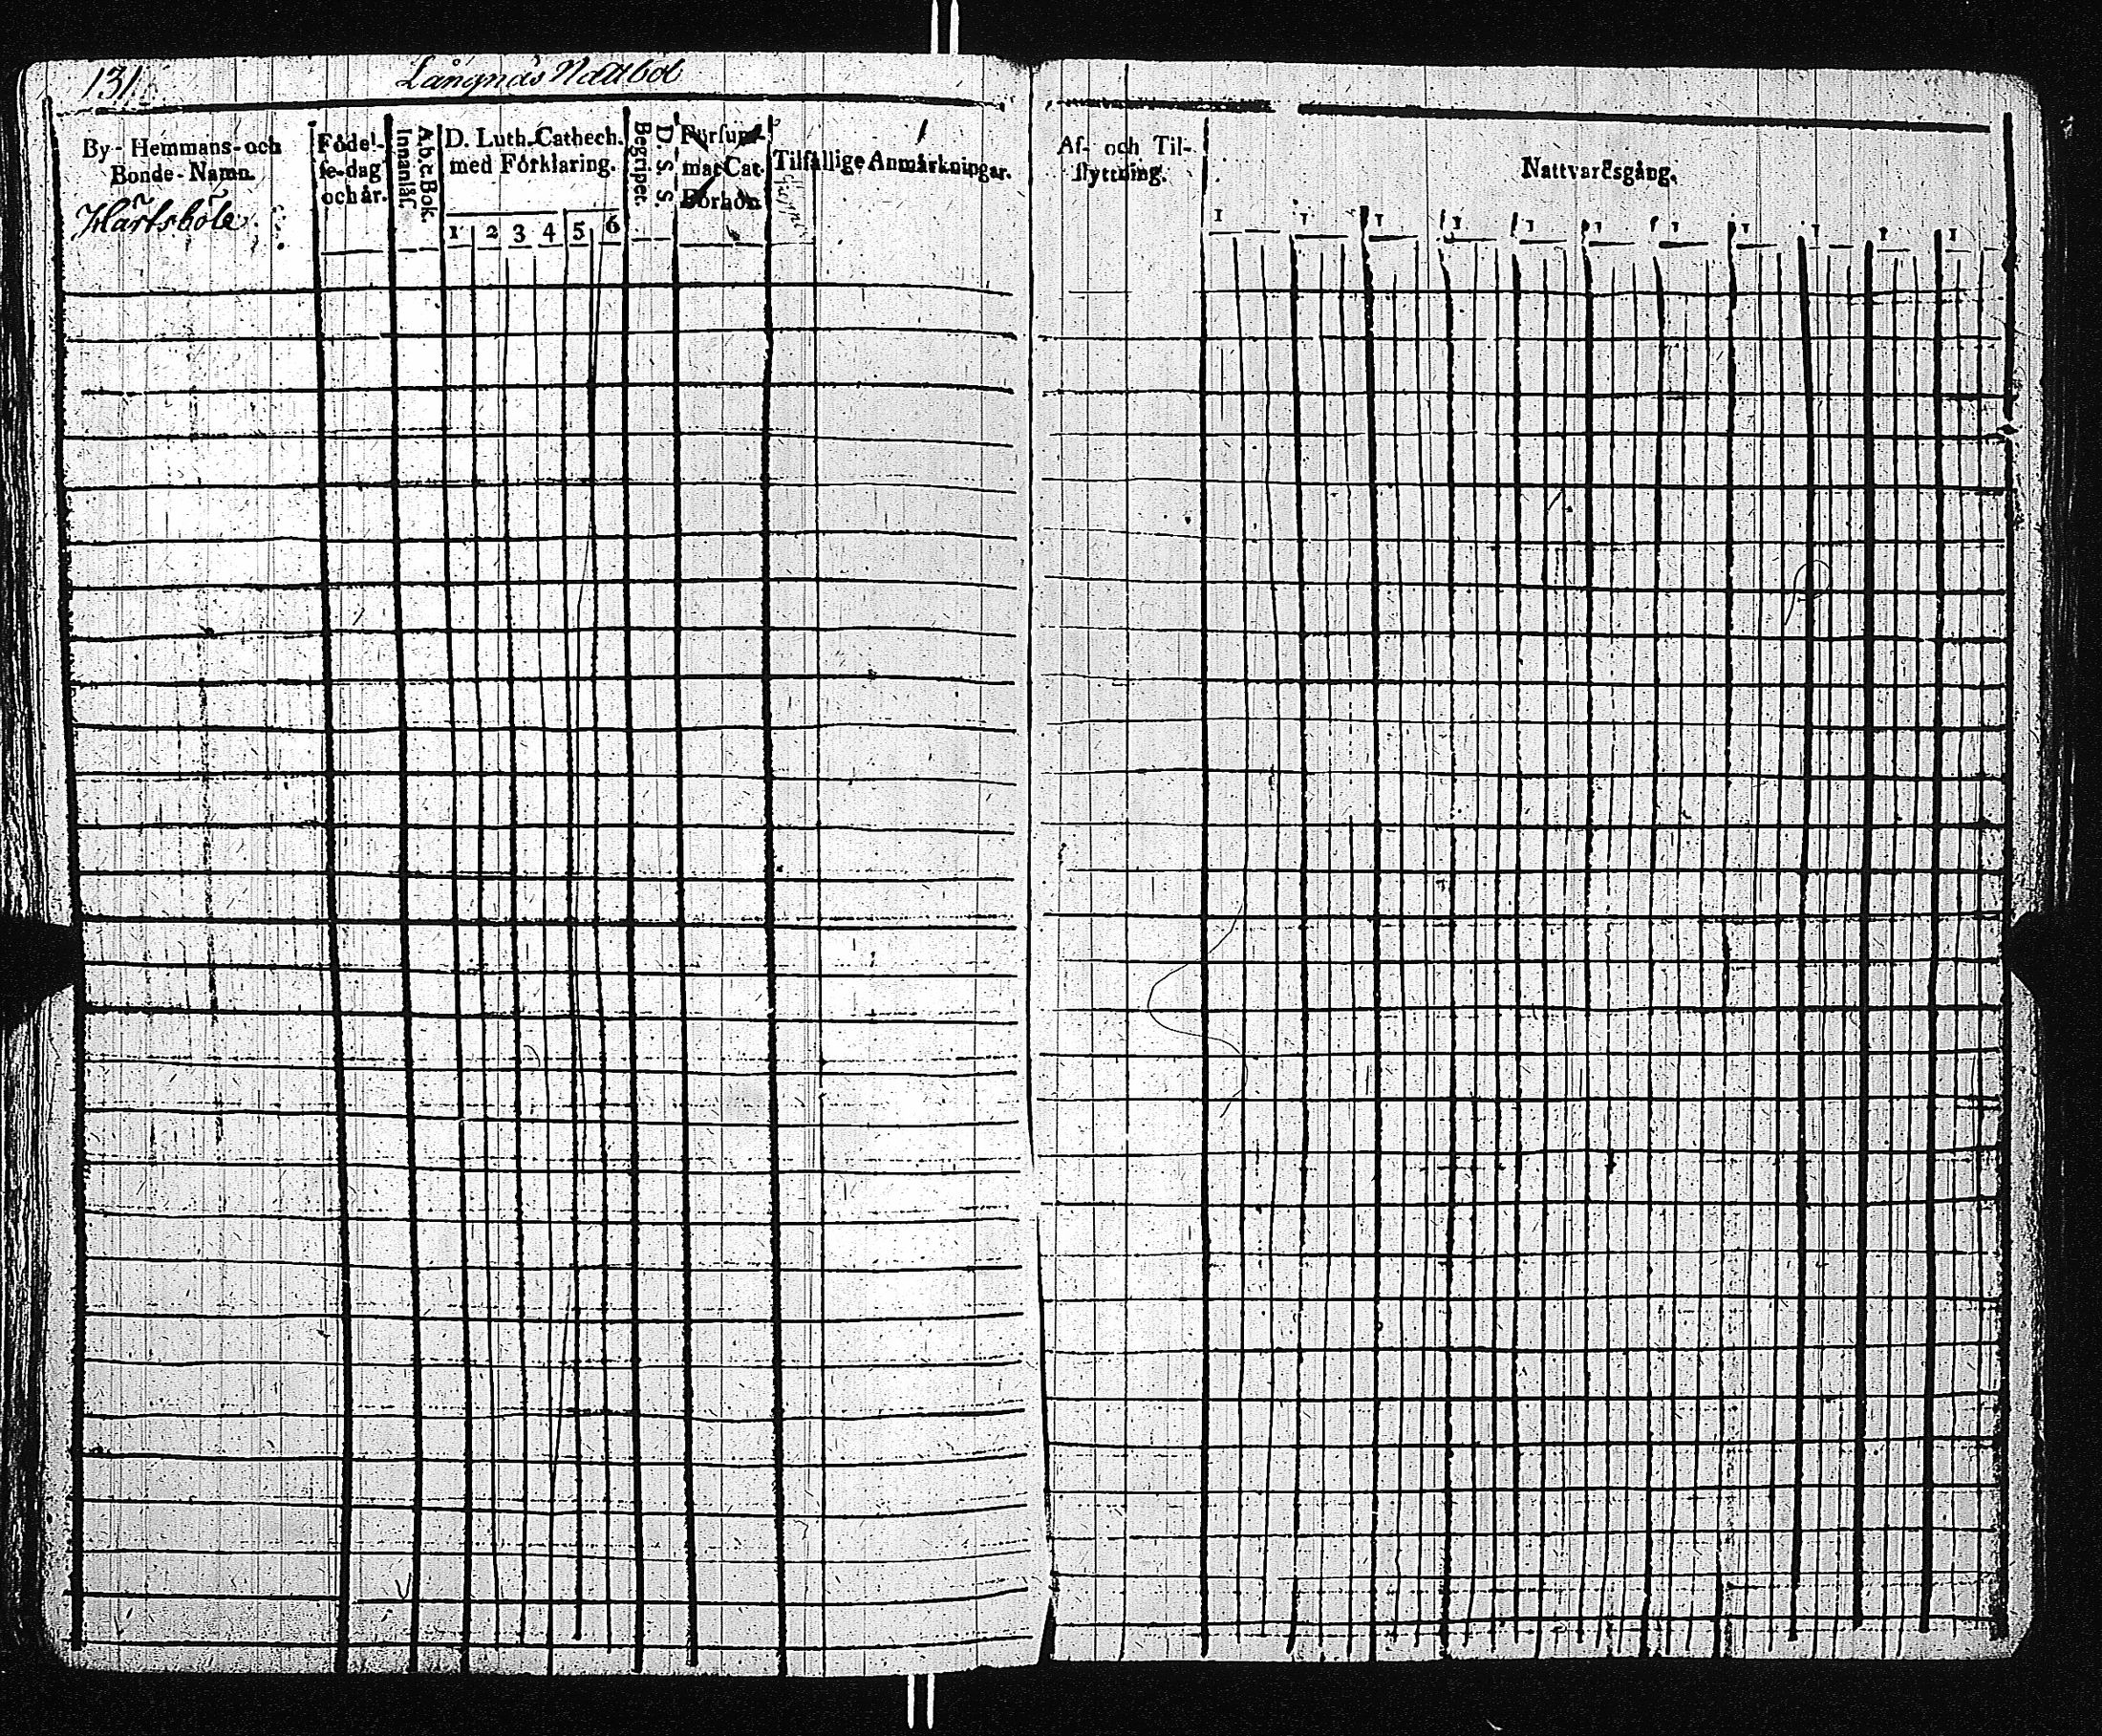 131.
Långnäs Nattbol
By- Hemmans- och
Bonde-Namn.
Hårtsböle
Födel-
se-dag
och år.
A.b.c. Bok.
Innanläs.
D. Luth. Cathech.
med Förklaring.
1 2 3 4 5 6
D. S. S.
Begriper.
Försum-
mat Cat-
Förhör.
Tilfällige Anmärkningar.
Af- och Til-
flyttning.
Nattvardsgång.
1 1 1 1 1 1 1 1 1 1 1